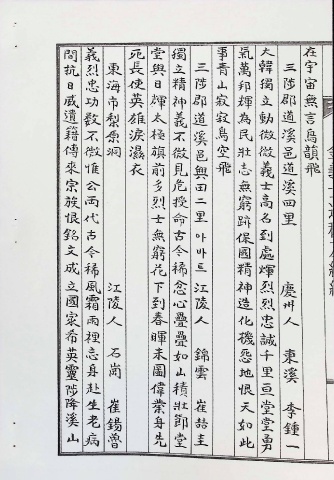 在宇宙無言鳥韻飛
三陟郡道溪邑道溪四里 慶州人 東溪 李鍾一
大韓獨立動微微義士高名到處煇烈烈忠誠千里亘堂堂勇
氣萬邦輝為民壯志無窮跡保國精神造化機怨地恨天如此
事青山寂寂鳥空飛
三陟郡道溪邑興田二里 아파트 江陵人 錦雲 崔喆圭
獨立精神義不微見危授命古今稀忿心疊疊如山積壯節堂
堂與日輝太極旗前多烈士無窮花下到春暉未圖偉業身先
死長使英雄淚濕衣
東海市梨原洞 江陵人 石崗 崔錫魯
義烈忠功數不微惟公兩代古今稀風霜雨裡忘身赴生老病
間抗日威遺籍傳來宗族恨銘文成立國家希英靈陟降溪山